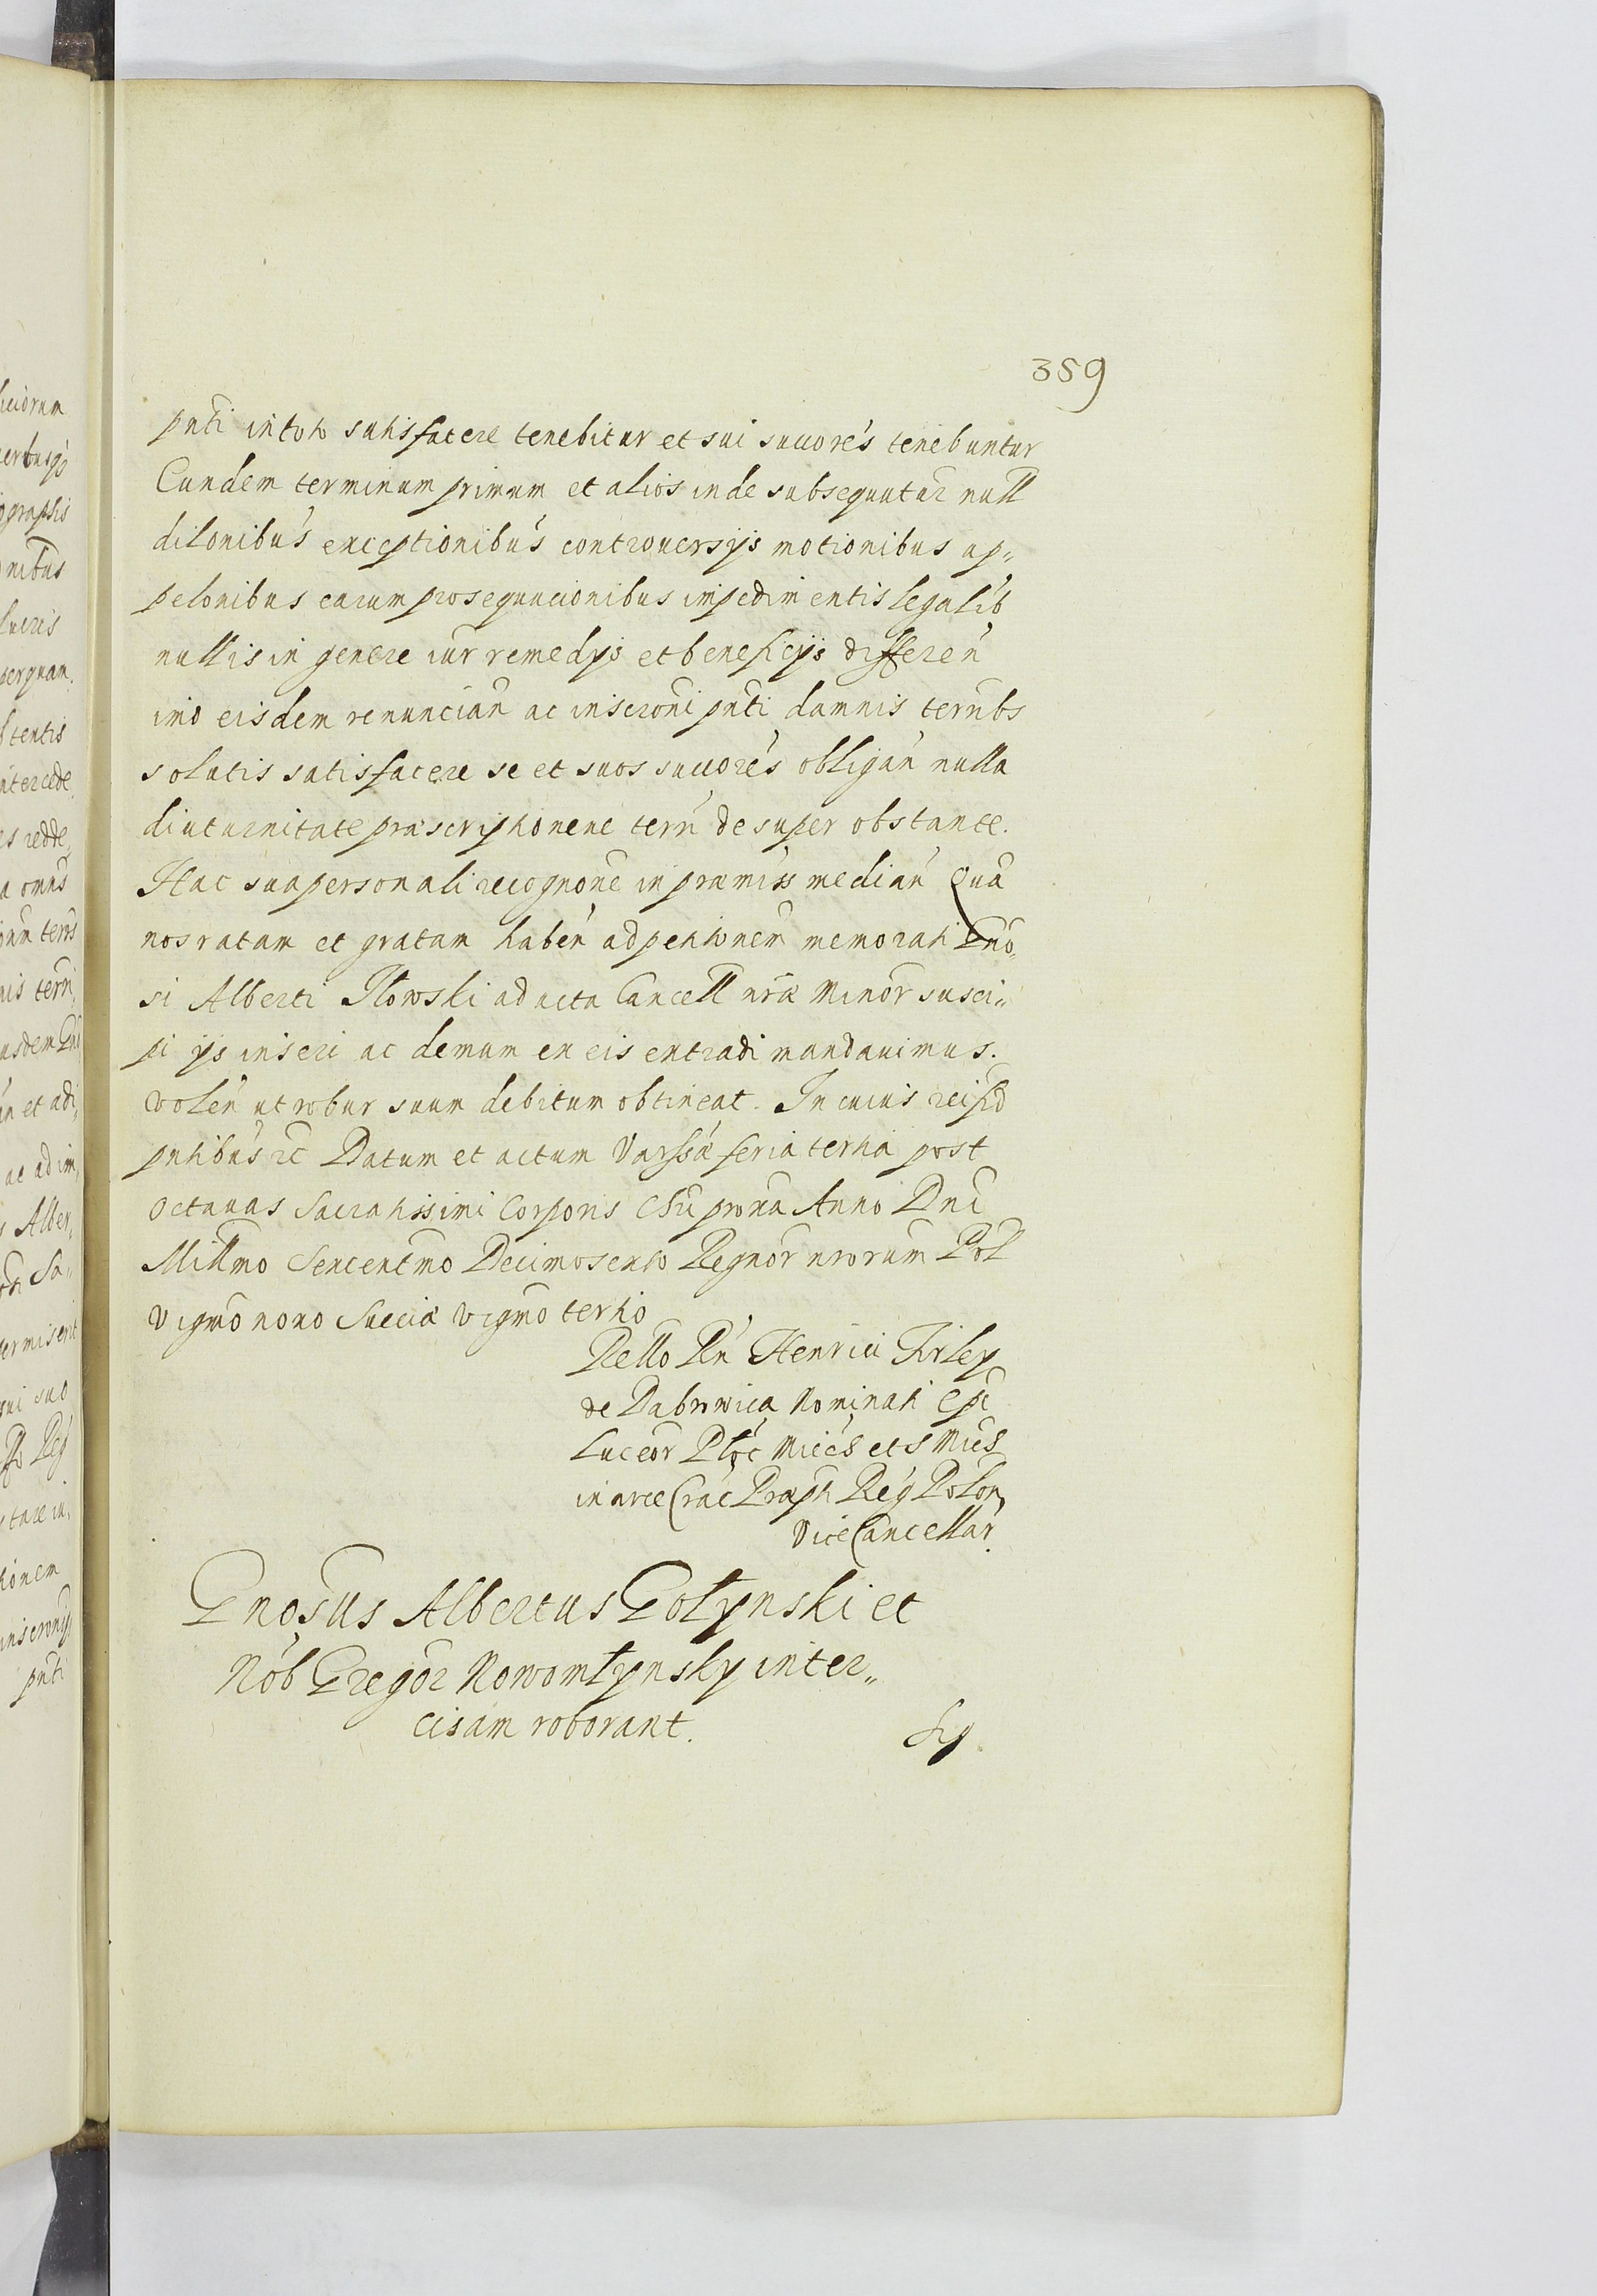 359
pnti in toto satisfacere tenebitur et sui succores tenebuntur
Eundem terminum primum et alios inde subsequutur null
dilonibus exceptionibus controversijs motionibus ap„
pelonibus earum prosequucionibus impedimentis legalib
nullis in genere iur remedijs et beneficijs differen
imo eisdem renuncian ac inscroni pnti damnis ternbs
solutis satisfacere se et suos succores obligan nulla
diuturnitate præscriptionene tern desuper obstante.
Hac sua personali recognone in præmiss median Qua
nos ratam et gratam haben ad petitionem memorati Gno„
si Alberti Iłowski ad acta Cancell nræ Minor susci„
pi ijs inseri ac demum ex eis extradi mandavimus.
volen ut robur suum debitum obtineat. In cuius rei fid
pntibus rc Datum et actum Varssæ feria tertia post
octavas Sacratissimi Corporis Chri proxa Anno Dni
Millmo Sexcentmo Decimosexto Regnor nrorum Pol
vigmo nono Sueciæ vigmo tertio
Rello Rn Henrici Firley
de Dabrowica Nominati Epi
Luceor Płoc Miecs et S Mics
in arce Crac Præpti Reg Polon
Vice Cancellar
Gnosus Albertus Gołynski et
Nob Gregor Nowomłynsky inter„
cisam roborant. Sig
liciorum
ographis
nibus
lucris
perquam
stentis
intercede
es redde
a omns
nis tern
an et adi,
ac ad im,
s Alber„
Sa„
termiserit
sui suo
Reg
stare in,
tionem
inscronis
pnti